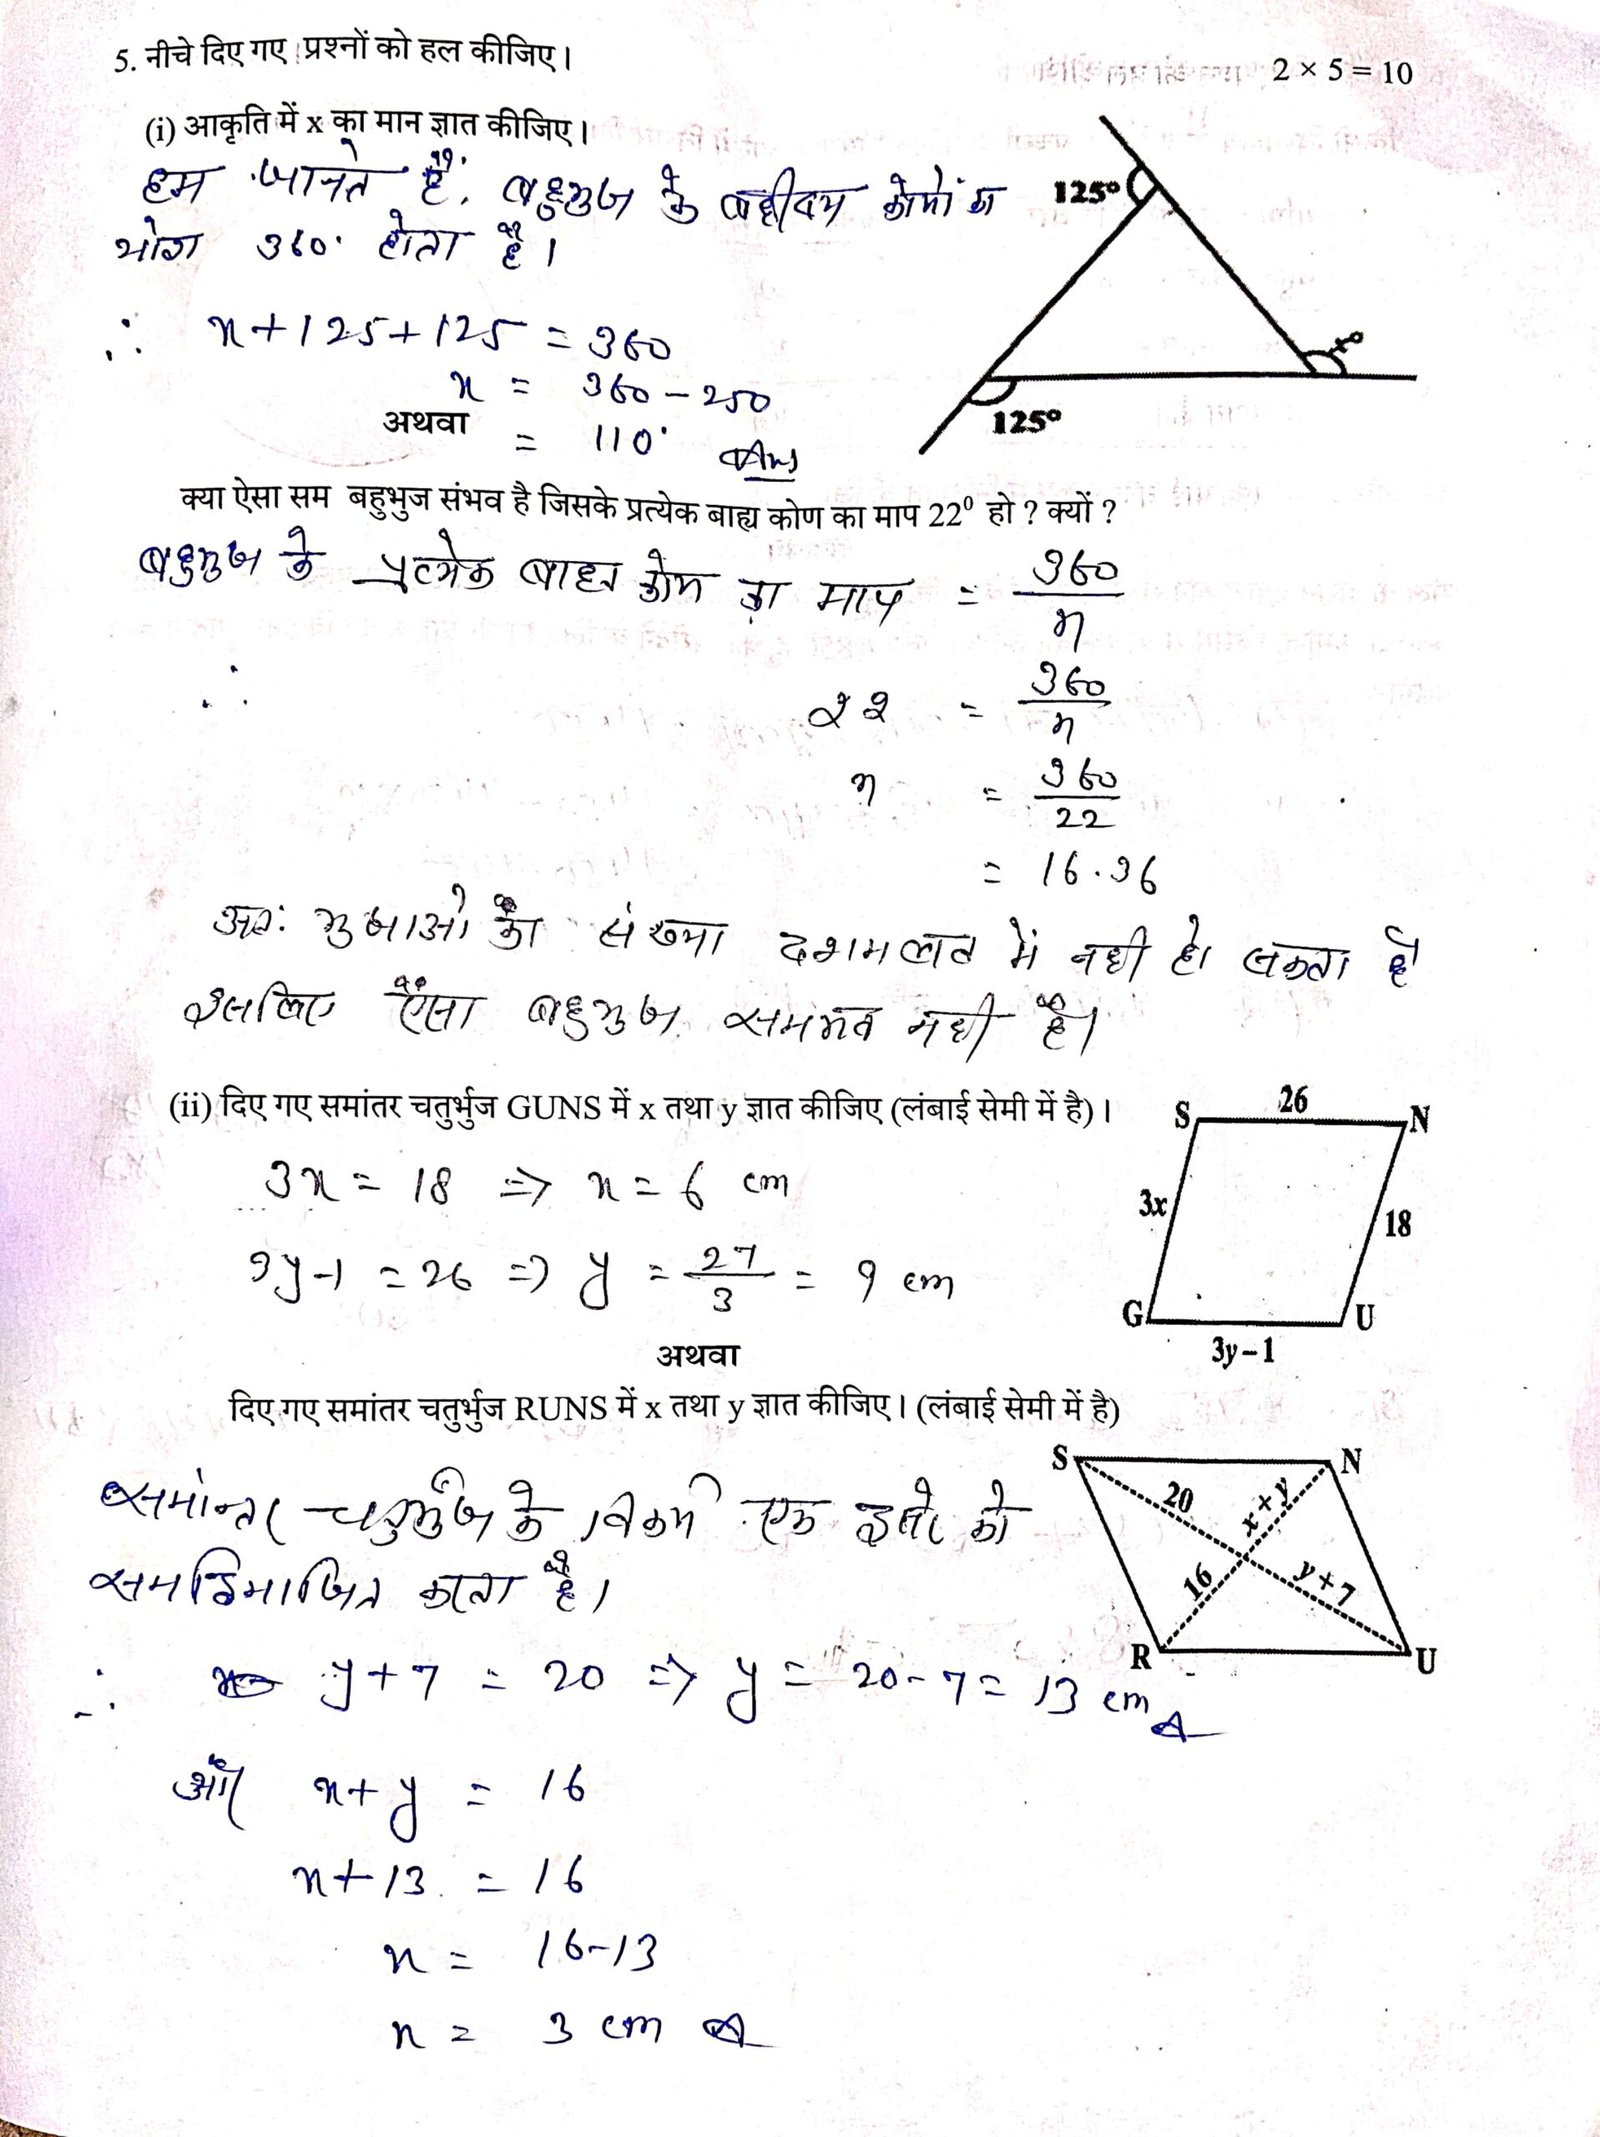 5. नीचे दिए गए प्रश्नों को हल कीजिए। 2 × 5 = 10
(i) आकृति में x का मान ज्ञात कीजिए।
हम जानते हैं, बहुभुज के बहीवम कोणों का
योग 360° होता है।
125°
x°
125°
∴ x + 125 + 125 = 360
x = 360 - 250
अथवा
= 110° Ans
क्या ऐसा सम बहुभुज संभव है जिसके प्रत्येक बाह्य कोण का माप 22⁰ हो ? क्यों ?
बहुभुज के प्रत्येक बाह्य कोण का माप = 360/n
∴ 22 = 360/n
n = 360/22
= 16.36
अतः भुजाओं की संख्या दशमलव में नही हो सकता है
इसलिए ऐसा बहुभुज सम्भव नही है।
(ii) दिए गए समांतर चतुर्भुज GUNS में x तथा y ज्ञात कीजिए (लंबाई सेमी में है)।
S 26 N
3x 18
G U
3y – 1
3x = 18 ⇒ x = 6 cm
3y - 1 = 26 ⇒ y = 27/3 = 9 cm
अथवा
दिए गए समांतर चतुर्भुज RUNS में x तथा y ज्ञात कीजिए। (लंबाई सेमी में है)
S N
20 x + y
16 y + 7
R U
समान्तर चतुर्भुज के विकर्ण एक दूसरे को
समद्विभाजित करता है।
∴ y + 7 = 20 ⇒ y = 20 - 7 = 13 cm
और x + y = 16
x + 13 = 16
x = 16 - 13
x = 3 cm